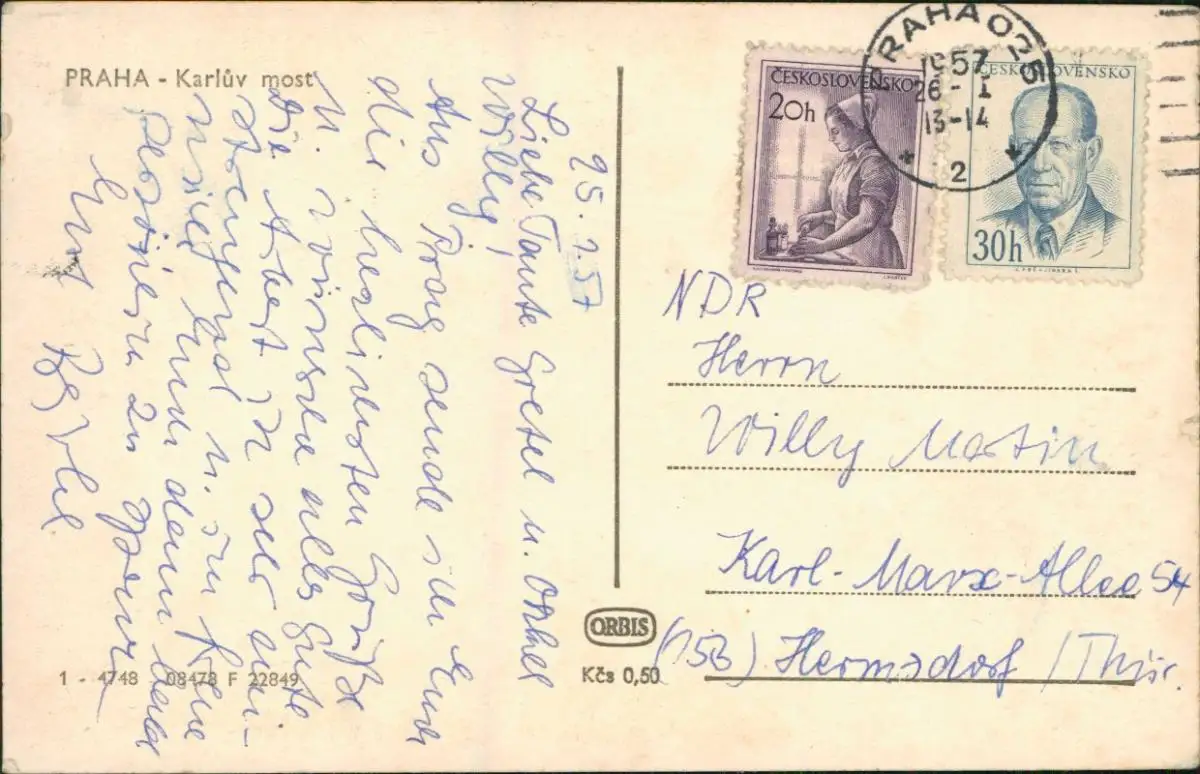 PRAHA - Karlův most
25.1.57
Liebe Tante Gretel u. Onkel
Willy!
Aus Prag sende ich Euch
die herzlichsten Grüße
u. wünsche alles Gute
Die Arbeit ist sehr
u. im
nun dann bald
zu
Euer
1 - 4748 08478 F 22849
ORBIS
Kčs 0,50
PRAHA 025
1957
26 - I
13-14
2
ČESKOSLOVENSKO
20h
ČESKOSLOVENSKO
30h
NDR
Herrn
Willy Martin
Karl-Marx-Allee 54
(15B) Hermsdorf / Thür.